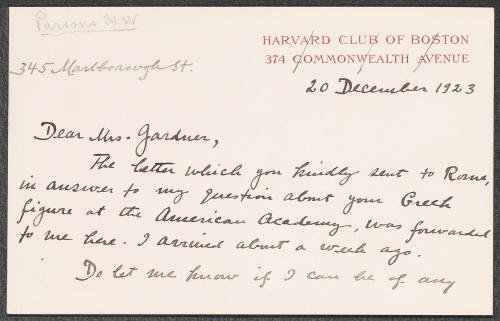 Parsons H W
HARVARD CLUB OF BOSTON
374 COMMONWEALTH AVENUE
345 Marlborough St.
20 December 1923
Dear Mrs. Gardner,
The letter which you kindly sent to Rome,
in answer to my question about your Greek
figure at the American Academy, was forwarded
to me here. I arrived about a week ago.
Do let me know if I can be of any